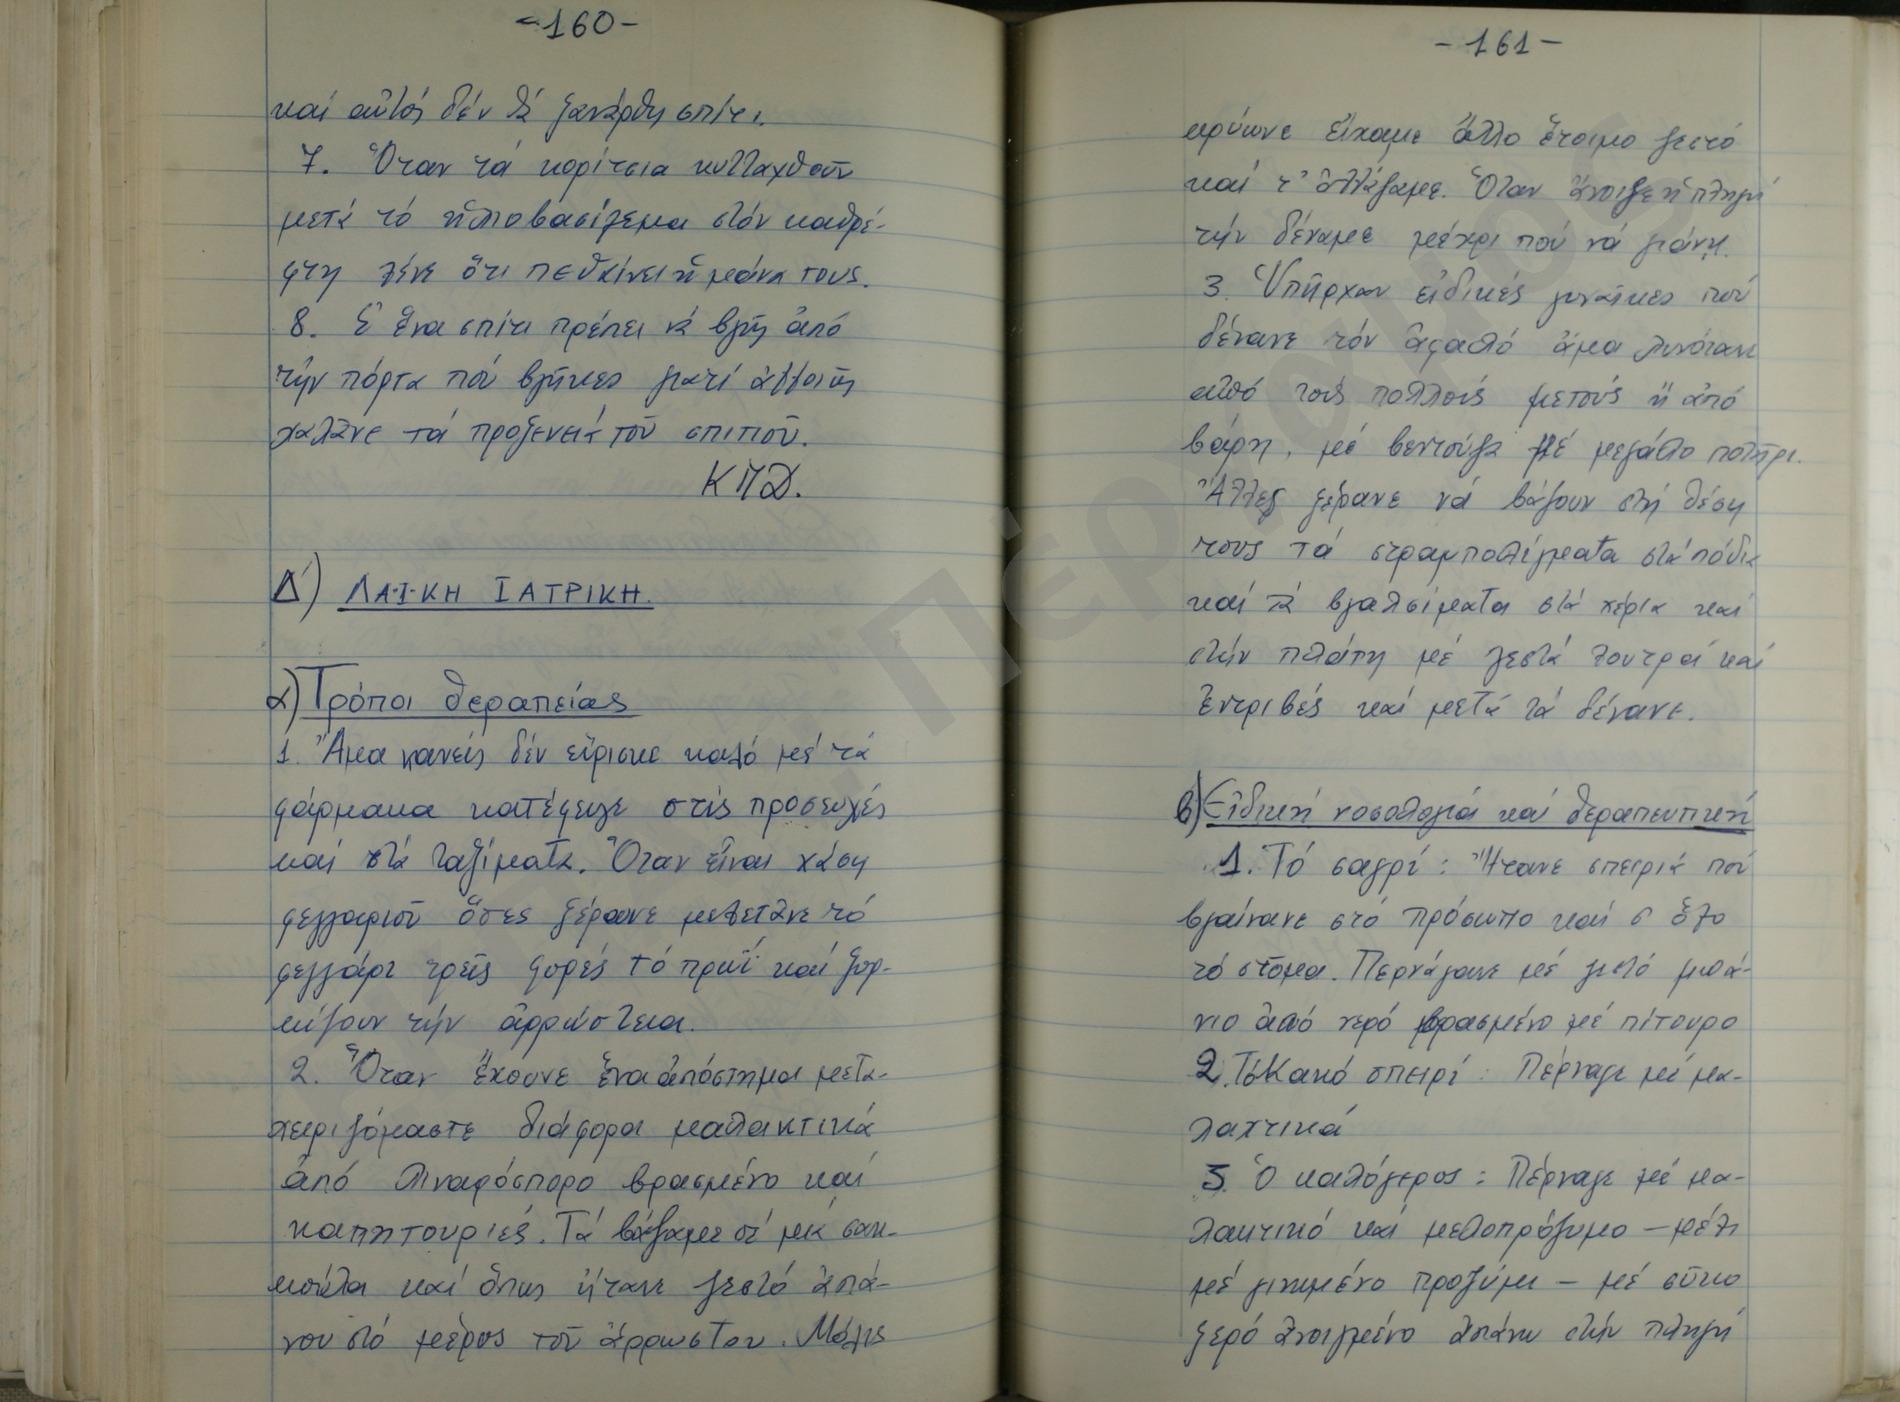 -160-
καί αὐτός δέν θά ξανάρθη σπίτι.
7. Ὅταν τά κορίτσια κυτταχθοῦν
μετά τό ἡλιοβασίλεμα στόν καθρέ-
φτη λένε ὅτι πεθαίνει ἡ μάνα τους.
8. Σ' ἕνα σπίτι πρέπει νά βγῆς ἀπό
τήν πόρτα πού βγῆκες γιατί ἀλλοιῶς
χαλᾶνε τά προξενειά τοῦ σπιτιοῦ.
ΚΠΔ.
Δ') ΛΑ-Ι-ΚΗ ΙΑΤΡΙΚΗ.
α) Τρόποι θεραπείας
1. Ἅμα κανείς δέν εὕρισκε καλό μέ τά
φάρμακα κατέφευγε στίς προσευχές
καί στά ταξίματα. Ὅταν εἶναι χάση
φεγγαριοῦ ὅσες ξέρουνε μελετᾶνε τό
φεγγάρι τρεῖς φορές τό πρωΐ καί ξορ-
κίζουν τήν ἀρρώστεια.
2. Ὅταν ἔχουνε ἕνα ἀπόστημα μετα-
χειριζόμαστε διάφορα μαλακτικά
ἀπό λιναρόσπορο βρασμένο καί
καπνιτουριές. Τά βάζαμε σέ μιά σακ-
κούλα καί ὅπως ἤτανε ζεστό ἀπά-
νου στό μέρος τοῦ ἀρρώστου. Μόλις
-161-
κρύωνε εἴχαμε ἄλλο ἕτοιμο ζεστό
καί τ' ἀλλάζαμε. Ὅταν ἄνοιξε ἡ πληγή
τήν δέναμε μέχρι πού νά γιάνη.
3. Ὑπῆρχαν εἰδικές γυναῖκες πού
δένανε τόν ἀφαλό ἅμα λυνότανε
ἀπό τούς πολλούς μετούς ἤ ἀπό
βάρη, μέ βεντούζα μέ μεγάλο ποτῆρι.
Ἄλλες ξέρανε νά βάζουν στή θέση
τους τά στραμπολίγματα στά πόδια
καί τά βγαλσίματα στά χέρια καί
στήν πλάτη μέ ζεστά λουτρά καί
ἐντριβές καί μετά τά δένανε.
β) Εἰδική νοσολογία καί θεραπευτική
1. Τό σαγρί: Ἤτανε σπειριά πού
βγαίνανε στό πρόσωπο καί σ' ὅλο
τό στόμα. Περνάγανε μέ ζεστό μπά-
νιο ἀπό νερό βρασμένο μέ πίτουρο
2. Τό Κακό σπειρί: Πέρναγε μέ μα-
λαχτικά
3. Ὁ καλόγερος: Πέρναγε μέ μα-
λακτικό καί μελοπρόζυμο - μέλι
μέ γινωμένο προζύμι - μέ σῦκο
ξερό ἀνοιγμένο ἀπάνω στήν πληγή